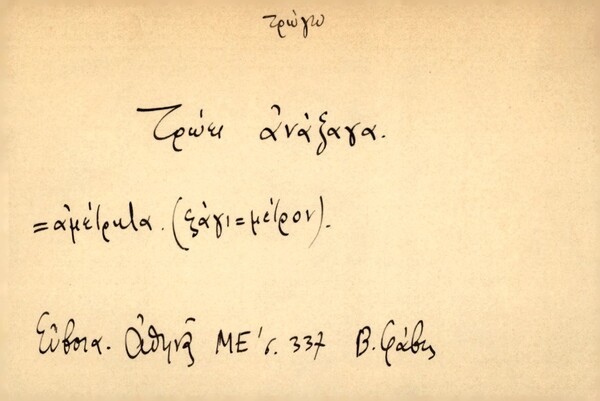 τρώγω
Τρώει ἀνάξαγα.
=ἀμέτρητα. (ξάγι=μέτρον).
Εὔβοια. Ἀθηνᾶ ΜΕ΄ς. 337 Β. Φάβης